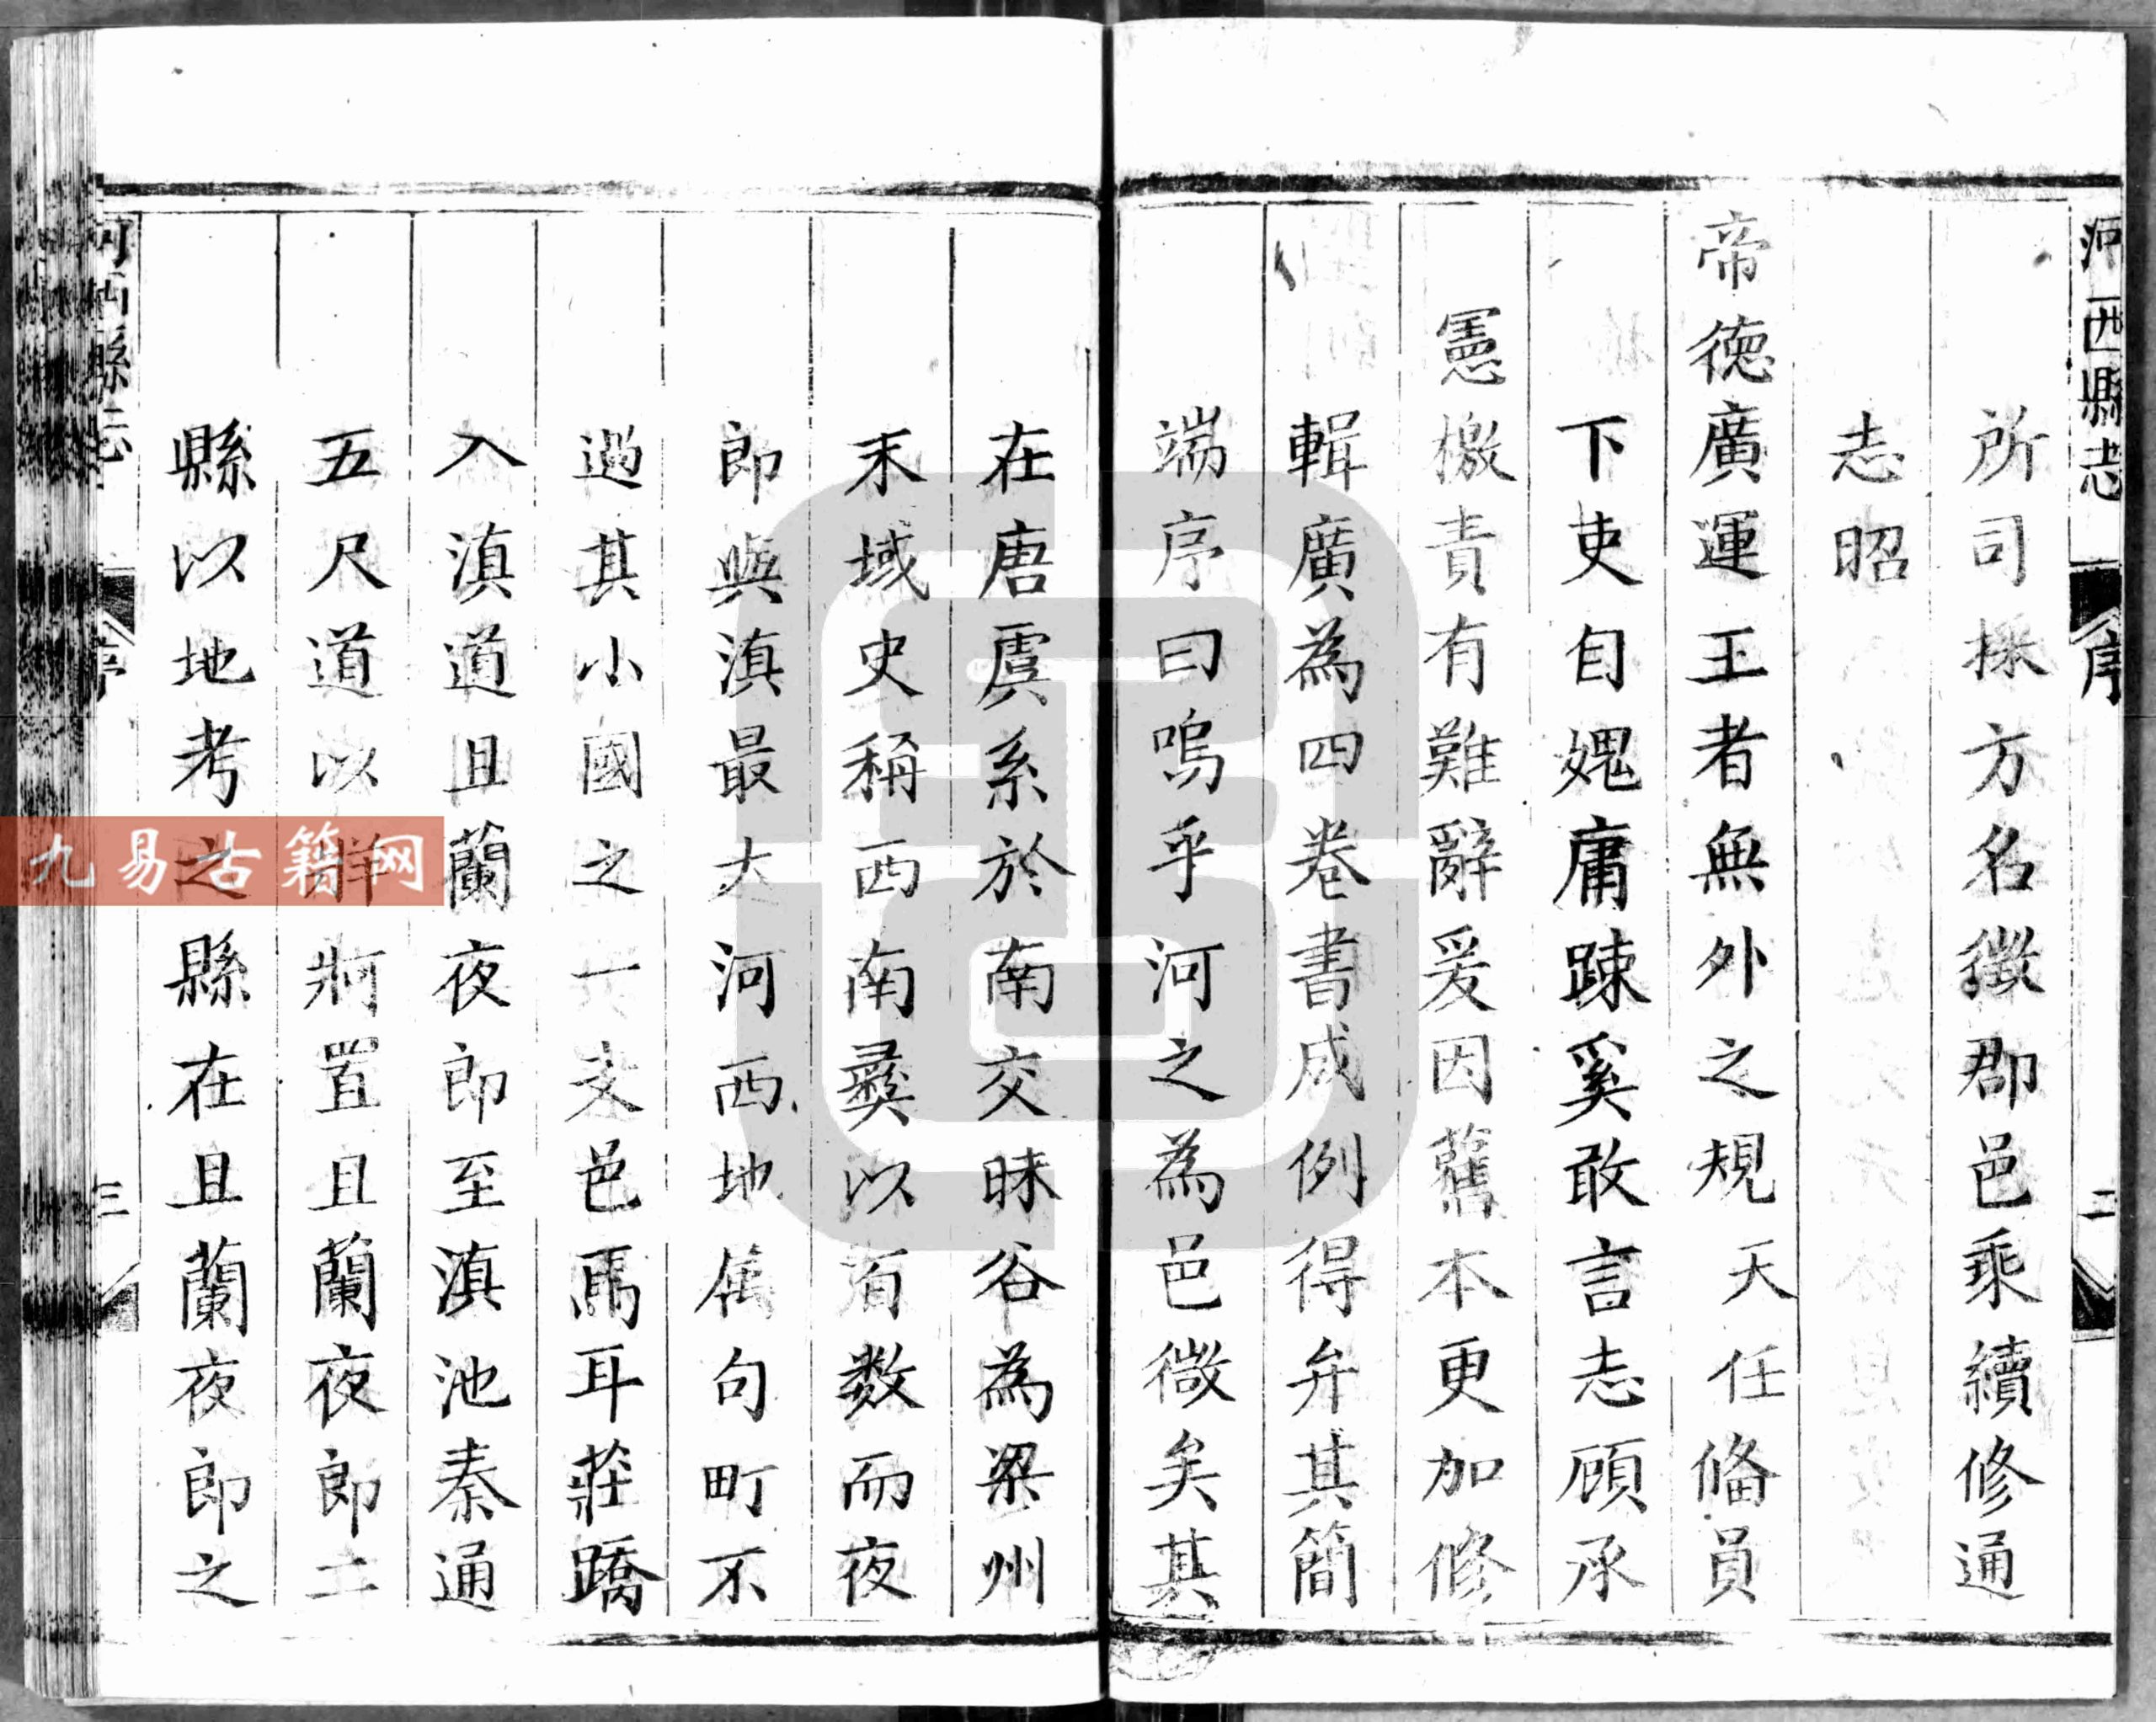 河西縣志
序
二
所司採方名徵郡邑乘續修通
志昭
帝德廣運王者無外之規天任俻員
下吏自媿庸踈奚敢言志顧承
憲檄責有難辭爰因舊本更加修
輯廣為四卷書成例得弁其簡
端序曰嗚乎河之為邑微矣其
在唐虞系於南交昧谷為梁州
末域史稱西南彝以百数而夜
郎與滇最大河西地属句町不
過其小國之一支邑焉耳莊蹻
入滇道且蘭夜郎至滇池秦通
五尺道以牂牁置且蘭夜郎二
縣以地考之縣在且蘭夜郎之
河西縣志
序
三
九易古籍网